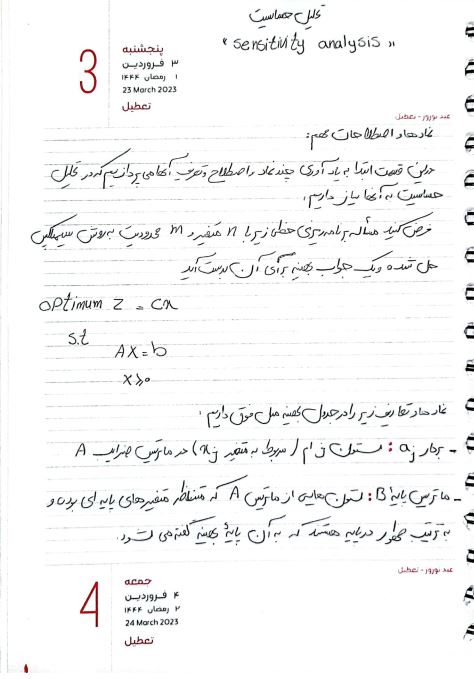 تحلیل حساسیت
"sensitivity analysis"
3
پنجشنبه
۳ فروردین
۱ رمضان ۱۴۴۴
23 March 2023
تعطیل
عید نوروز - تعطیل
نمادها و اصطلاحات مهم:
در این قسمت ابتدا به یاد آوری چند نماد و اصطلاح و تعریف آنها می پردازیم که در تحلیل
حساسیت به آنها نیاز داریم:
فرض کنید مسأله برنامه ریزی خطی زیر با n متغیر و m محدودیت به روش سیمپلکس
حل شده و یک جواب بهینه برای آن بدست آید
optimum Z = cx
s.t
AX = b
X ≥ 0
نمادها و تعاریف زیر را در جدول بهینه مدل فوق داریم:
- بردار aj : ستون j ام (مربوط به متغیر xj) در ماتریس ضرایب A
- ماتریس پایه B: ستون هایی از ماتریس A که متناظر متغیرهای پایه ای بوده و
به ترتیب ظهور در پایه هستند که به آن پایهٔ بهینه گفته می شود.
عید نوروز - تعطیل
4
جمعه
۴ فروردین
۲ رمضان ۱۴۴۴
24 March 2023
تعطیل